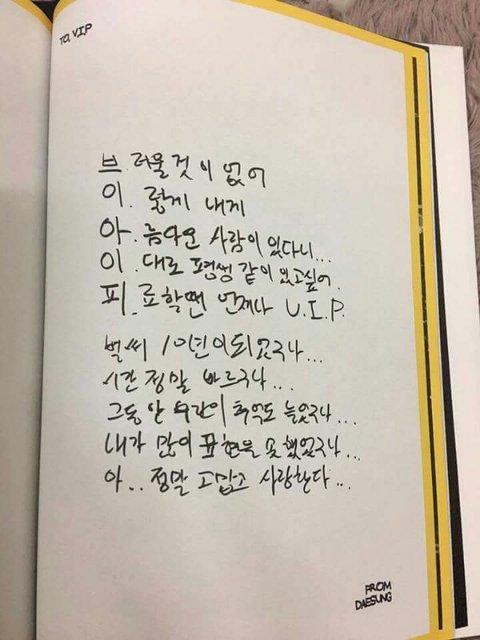 TO. V.I.P
브. 러울 것이 없어
이. 렇게 내게
아. 름다운 사람이 있다니...
이. 대로 평생 같이 있고싶어.
피. 료할땐 언제나 V.I.P.
벌써 10년이 되었구나...
시간 정말 빠르구나...
그동안 추억도 늘었구나...
내가 많이 표현을 못했었구나...
아.. 정말 고맙고 사랑한다...
FROM
DAESUNG